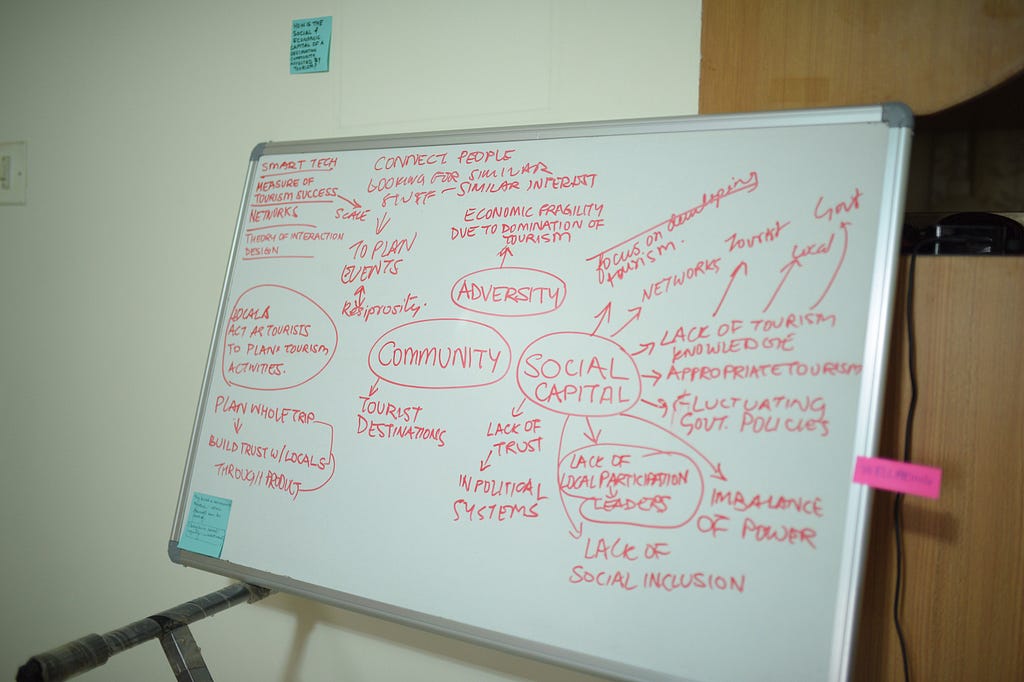 HOW IS THE
SOCIAL &
ECONOMIC
CAPITAL OF A
DESTINATION
COMMUNITY
AFFECTED BY
TOURISM?
SMART TECH
MEASURE OF
TOURISM SUCCESS
NETWORKS
THEORY OF INTERACTION
DESIGN
SCALE
CONNECT PEOPLE
LOOKING FOR SIMILAR
STUFF – SIMILAR INTEREST
TO PLAN
EVENTS
Resiprosity.
ECONOMIC FRAGILITY
DUE TO DOMINATION OF
TOURISM
ADVERSITY
Focus on developing
tourism.
NETWORKS
Tourist
Local
Govt
LOCALS
ACT AS TOURISTS
TO PLAN TOURISM
ACTIVITIES.
PLAN WHOLE TRIP
BUILD TRUST W/LOCALS
THROUGH PRODUCT
COMMUNITY
TOURIST
DESTINATIONS
SOCIAL
CAPITAL
LACK OF TOURISM
KNOWLEDGE
APPROPRIATE TOURISM
FLUCTUATING
GOVT. POLICIES
LACK OF
TRUST
IN POLITICAL
SYSTEMS
LACK OF
LOCAL PARTICIPATION
LEADERS
IMBALANCE
OF POWER
LACK OF
SOCIAL INCLUSION